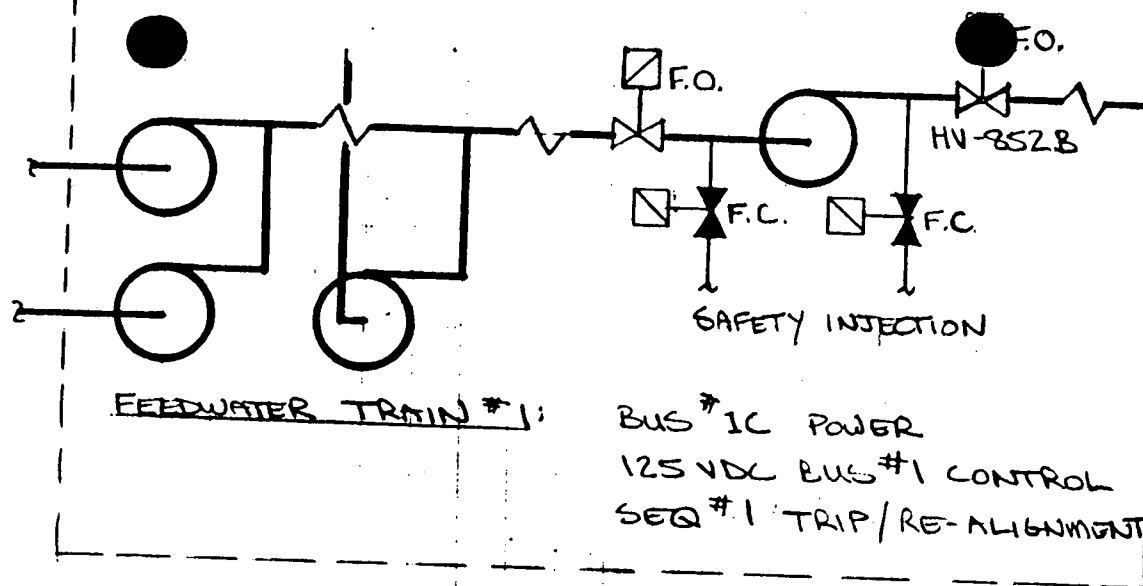 F.O.
F.O.
HV-852B
F.C.
F.C.
SAFETY INJECTION
FEEDWATER TRAIN #1:
BUS #1C POWER
125 VDC BUS #1 CONTROL
SEQ #1 TRIP/RE-ALIGNMENT